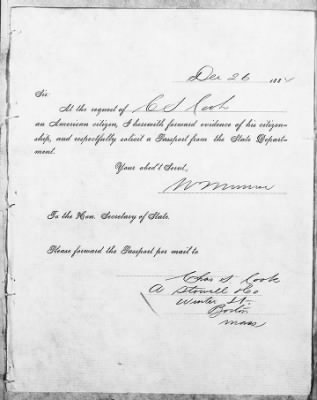 Dec 26 1884
Sir:
At the request of C S Cook
an American citizen, I herewith forward evidence of his citizen-
ship, and respectfully solicit a Passport from the State Depart-
ment.
Your obed't Servt,
To the Hon. Secretary of State.
Please forward the Passport per mail to
Chas S Cook
A Stowell & Co
Winter St.
Boston
Mass